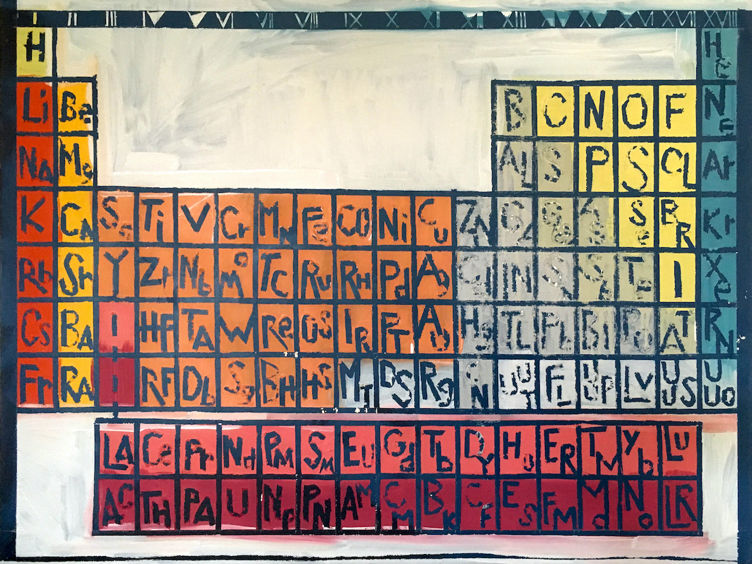 VII VIII IX X XI XVI XVII XVIII
H He
Li Be B C N O F Ne
NA Mg AL S P S CL Ar
K CA Sc Ti V Cr MN Fe CO Ni Cu ZN Ga Ge As Se BR Kr
Rb Sr Y Zr Nb Mo TC Ru RH Pd Ag Cd IN S Te I Xe
Cs BA I HF TA W Re OS IR PT AU Hg TL Pb BI Po AT RN
Fr RA I RF Db Sg BH HS MT DS Rg CN UUT FL UUP LV UUS UUO
LA Ce Pr Nd PM SM EU Gd Tb DY HO ER TM Yb LU
AC TH PA U NP PN AM CM BK CF ES FM Md No LR